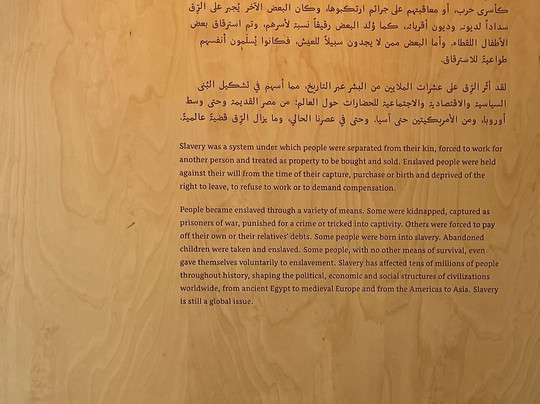 كأسرى حرب، أو معاقبتهم على جرائم ارتكبوها، وكان البعض الآخر يُجبر على الرِّق
سداداً لديونه وديون أقربائه، كما وُلد البعض رقيقاً نسبة لأسرهم، وتم استرقاق بعض
الأطفال اللقطاء. وأما البعض ممن لا يجدون سبيلاً للعيش، فكانوا يُسلّمون أنفسهم
طواعيةً للاسترقاق.
لقد أثّر الرق على عشرات الملايين من البشر عبر التاريخ، مما أسهم في تشكيل البُنى
السياسية والاقتصادية والاجتماعية للحضارات حول العالم؛ من مصر القديمة وحتى وسط
أوروبا، ومن الأمريكيتين حتى آسيا. وحتى في عصرنا الحالي، وما يزال الرِّق قضيةً عالميةً.
Slavery was a system under which people were separated from their kin, forced to work for
another person and treated as property to be bought and sold. Enslaved people were held
against their will from the time of their capture, purchase or birth and deprived of the
right to leave, to refuse to work or to demand compensation.
People became enslaved through a variety of means. Some were kidnapped, captured as
prisoners of war, punished for a crime or tricked into captivity. Others were forced to pay
off their own or their relatives' debts. Some people were born into slavery. Abandoned
children were taken and enslaved. Some people, with no other means of survival, even
gave themselves voluntarily to enslavement. Slavery has affected tens of millions of people
throughout history, shaping the political, economic and social structures of civilizations
worldwide, from ancient Egypt to medieval Europe and from the Americas to Asia. Slavery
is still a global issue.